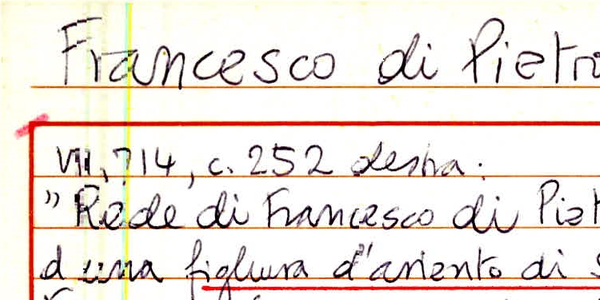 Francesco di Pietro
VII, 714, c. 252 destra:
"Rede di Francesco di Piet
d una figliura d'ariento di S